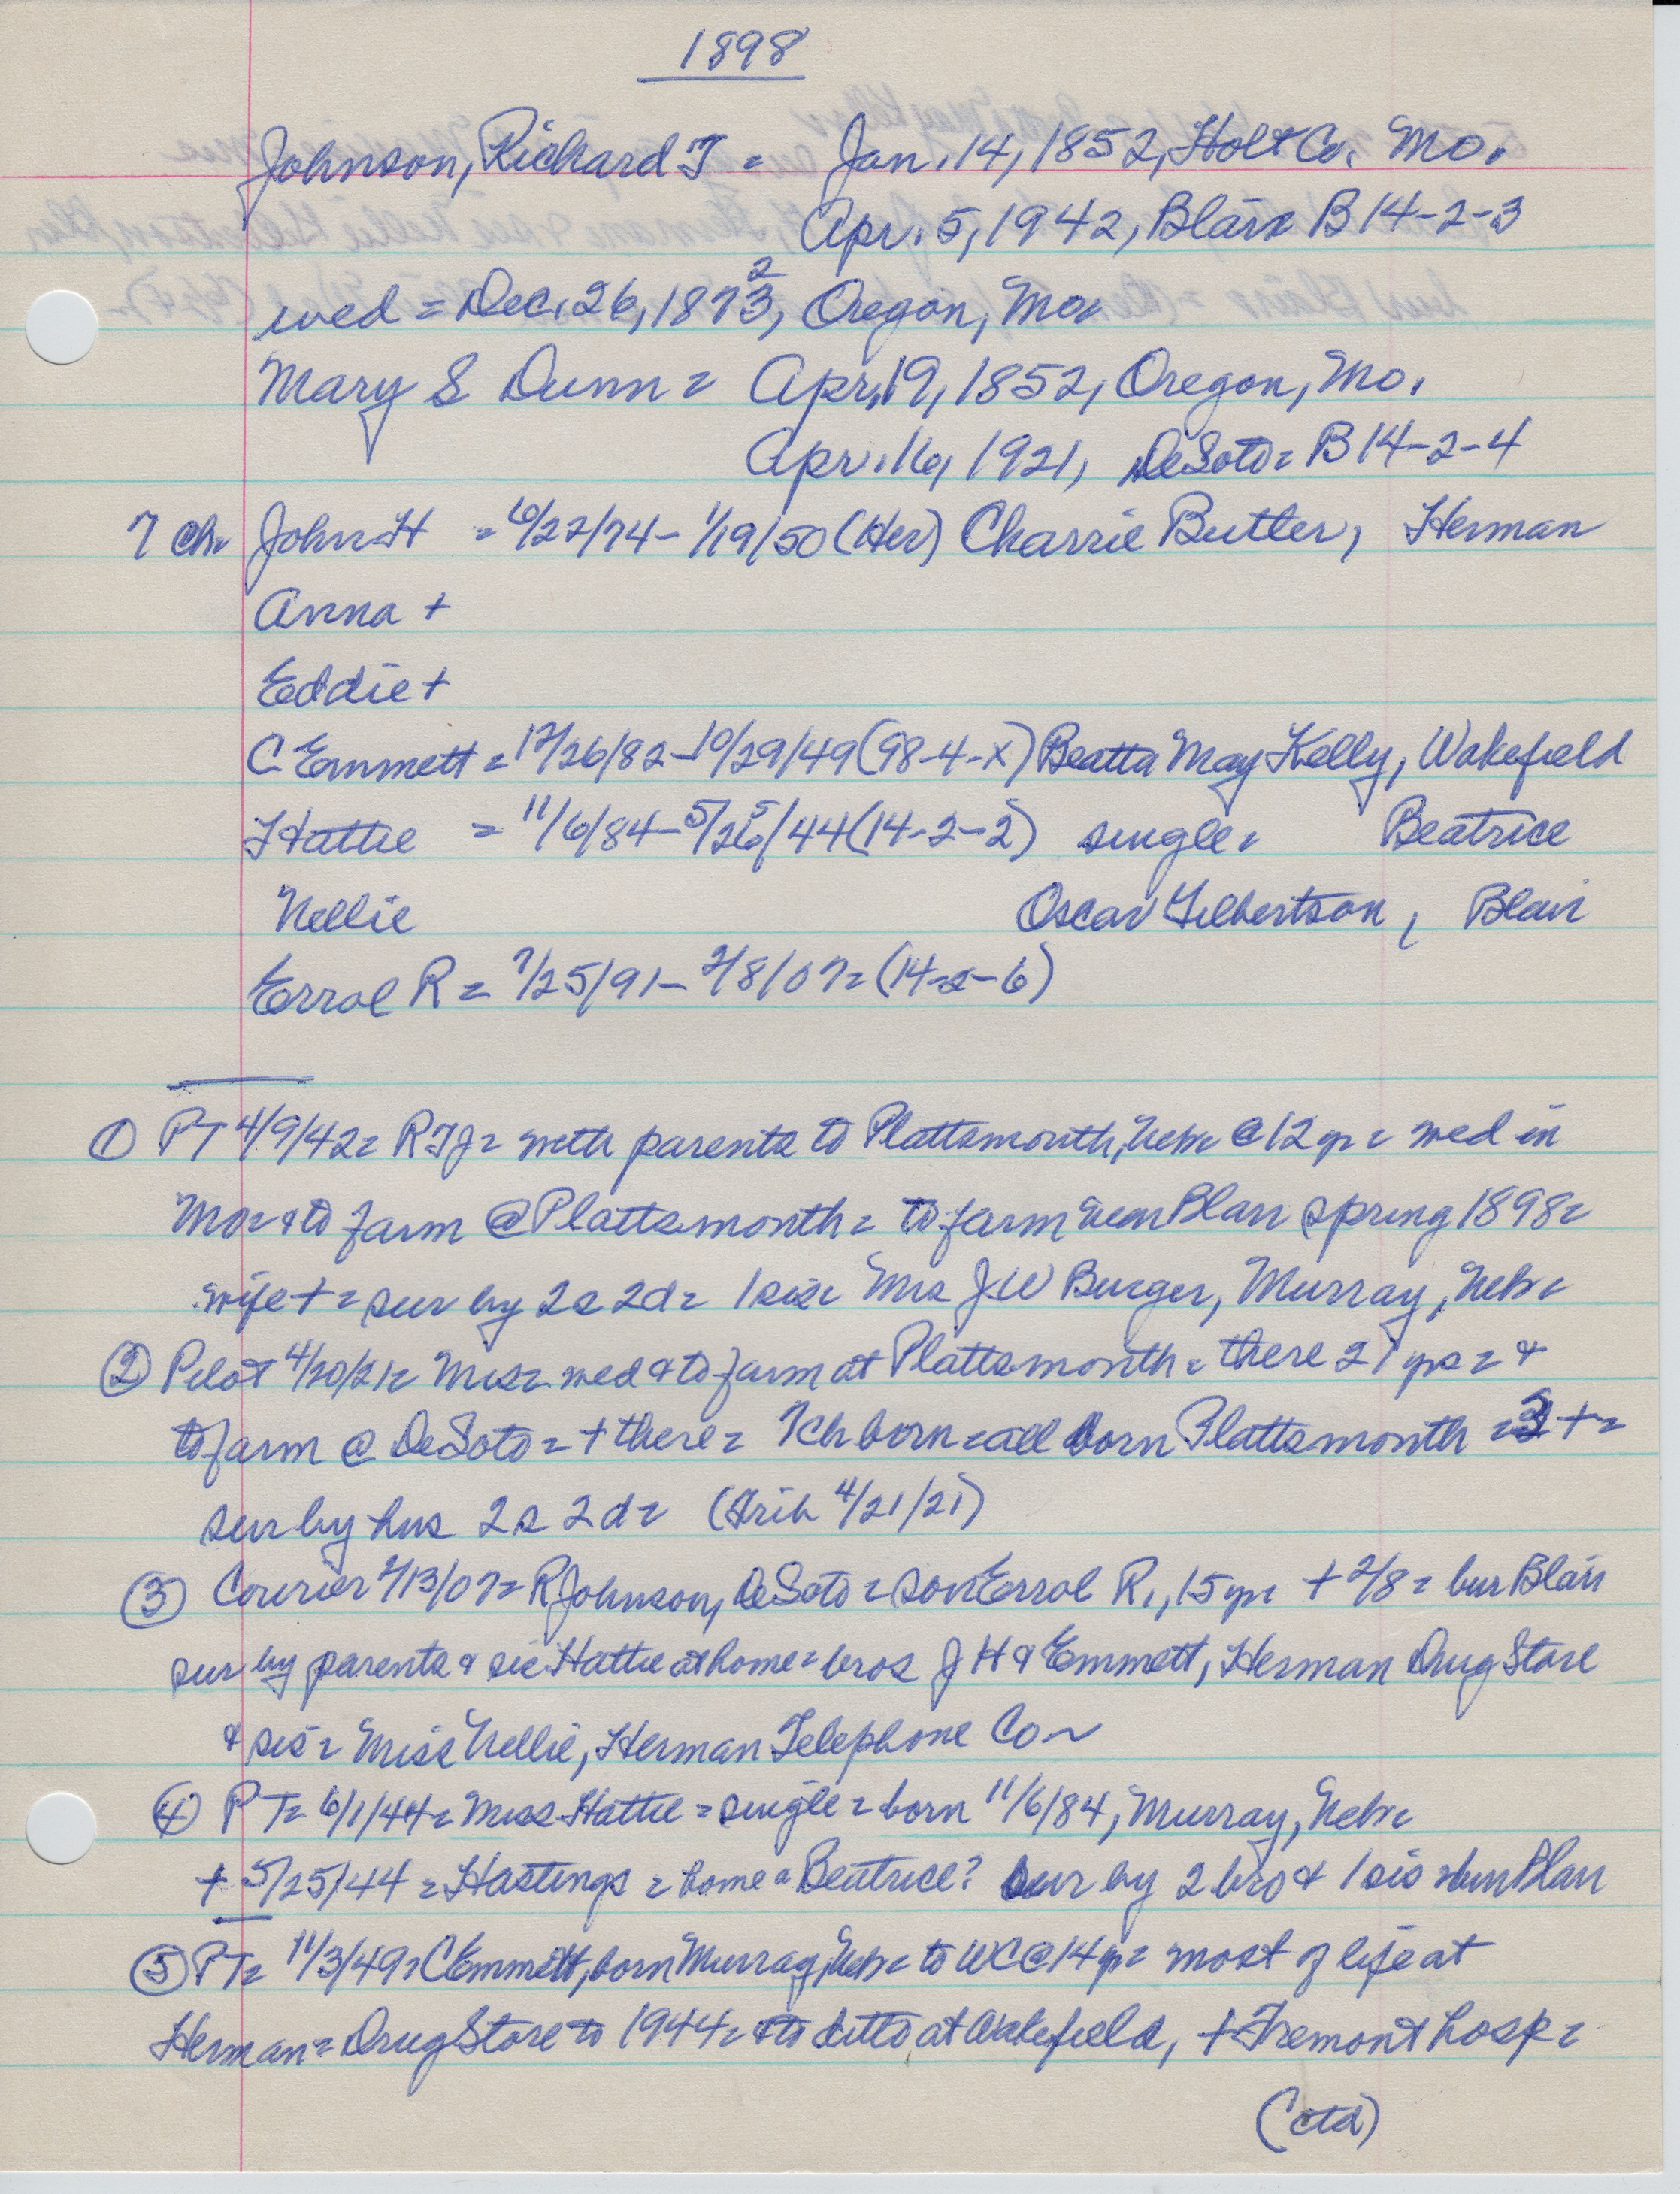 1898
Johnson, Richard T = Jan. 14, 1852, Holt Co. Mo.
Apr. 5, 1942, Blair B 14-2-3
2
wed = Dec. 26, 1873, Oregon, Mo.
Mary S Dunn = Apr. 19, 1852, Oregon, Mo.
Apr. 16, 1921, DeSoto = B 14-2-4
7 ch = John H = 6/22/74 - 1/19/50 (Her) Charrie Butler, Herman
Anna +
Eddie +
C. Emmett = 12/26/82 - 10/29/49 (98-4-X) Beatta May Kelly, Wakefield
Hattie = 11/6/84 - 5/26/44 (14-2-2) single = Beatrice
Nellie Oscar Gilbertson, Blair
Errol R = 7/25/91 - 2/8/07 = (14-2-6)
① PT 4/9/42 = RTJ = with parents to Plattsmouth, Nebr @ 12 yr = wed in
Mo = & to farm @ Plattsmouth = to farm near Blair spring 1898 =
wife + = sur by 2s 2d = 1 sis = Mrs J W Burger, Murray, Nebr =
② Pilot 4/20/21 = Mrs = wed & to farm at Plattsmouth = there 21 yrs = &
to farm @ DeSoto = + there = 7 ch born = all born Plattsmouth = 3 + =
sur by hus 2s 2d = (Trib 4/21/21)
③ Courier 2/13/07 = R Johnson, DeSoto = son Errol R., 15 yr = + 2/8 = bur Blair
sur by parents & sis Hattie at home = bros J H & Emmett, Herman Drug Store
& sis = Miss Nellie, Herman Telephone Co ~
④ PT = 6/1/44 = Miss Hattie = single = born 11/6/84, Murray, Nebr =
+ 5/25/44 = Hastings = home = Beatrice? Sur by 2 bro & 1 sis = bur Blair
⑤ PT = 11/3/49 = C Emmett, born Murray, Nebr = to WC @ 14 yr = most of life at
Herman = Drug Store to 1944 = & to ditto at Wakefield, + Fremont hosp =
(ctd)